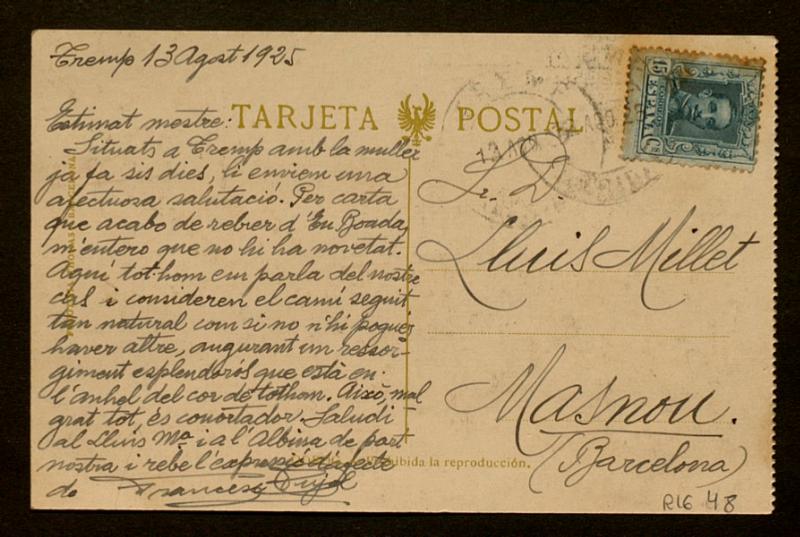 Tremp 13 Agost 1925
TARJETA POSTAL
15 CS
CORREOS
ESPAÑA
Estimat mestre:
Situats a Tremp amb la muller
ja fa sis dies, li enviem una
afectuosa salutació. Per carta
que acabo de rebrer d'En Boada,
m'entero que no hi ha novetat.
Aquí tot-hom em parla del nostre
cas i consideren el camí seguit
tan natural com si no n'hi pogués
haver altre, augurant un ressor-
giment esplendorós que està en
l'anhel del cor de tothom. Això, mal
grat tot, és conortador. Saludi
al Lluis Mª i a l'Albina de part
nostra i rebi l'expressió d'afecte
de Francesc Pujol
Sr. D.
Lluis Millet
Masnou.
(Barcelona)
Prohibida la reproducción.
13 AGO
R16 48